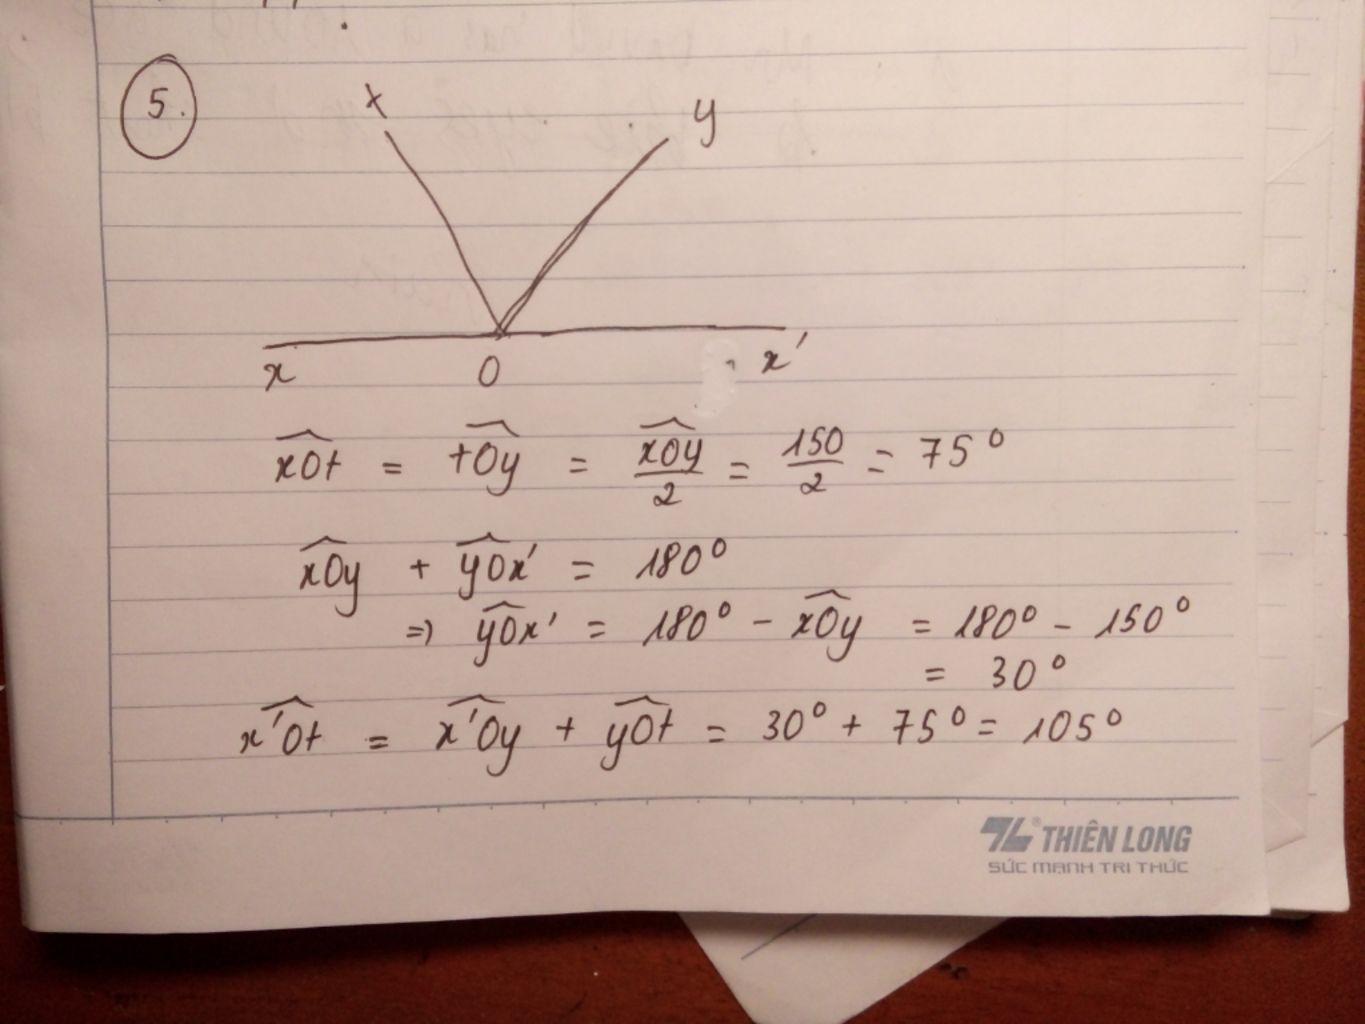 5.
t y
x O x'
xOt = tOy = xOy/2 = 150/2 = 75°
xOy + yOx' = 180°
=> yOx' = 180° - xOy = 180° - 150°
= 30°
x'Ot = x'Oy + yOt = 30° + 75° = 105°
THIÊN LONG
SỨC MẠNH TRI THỨC